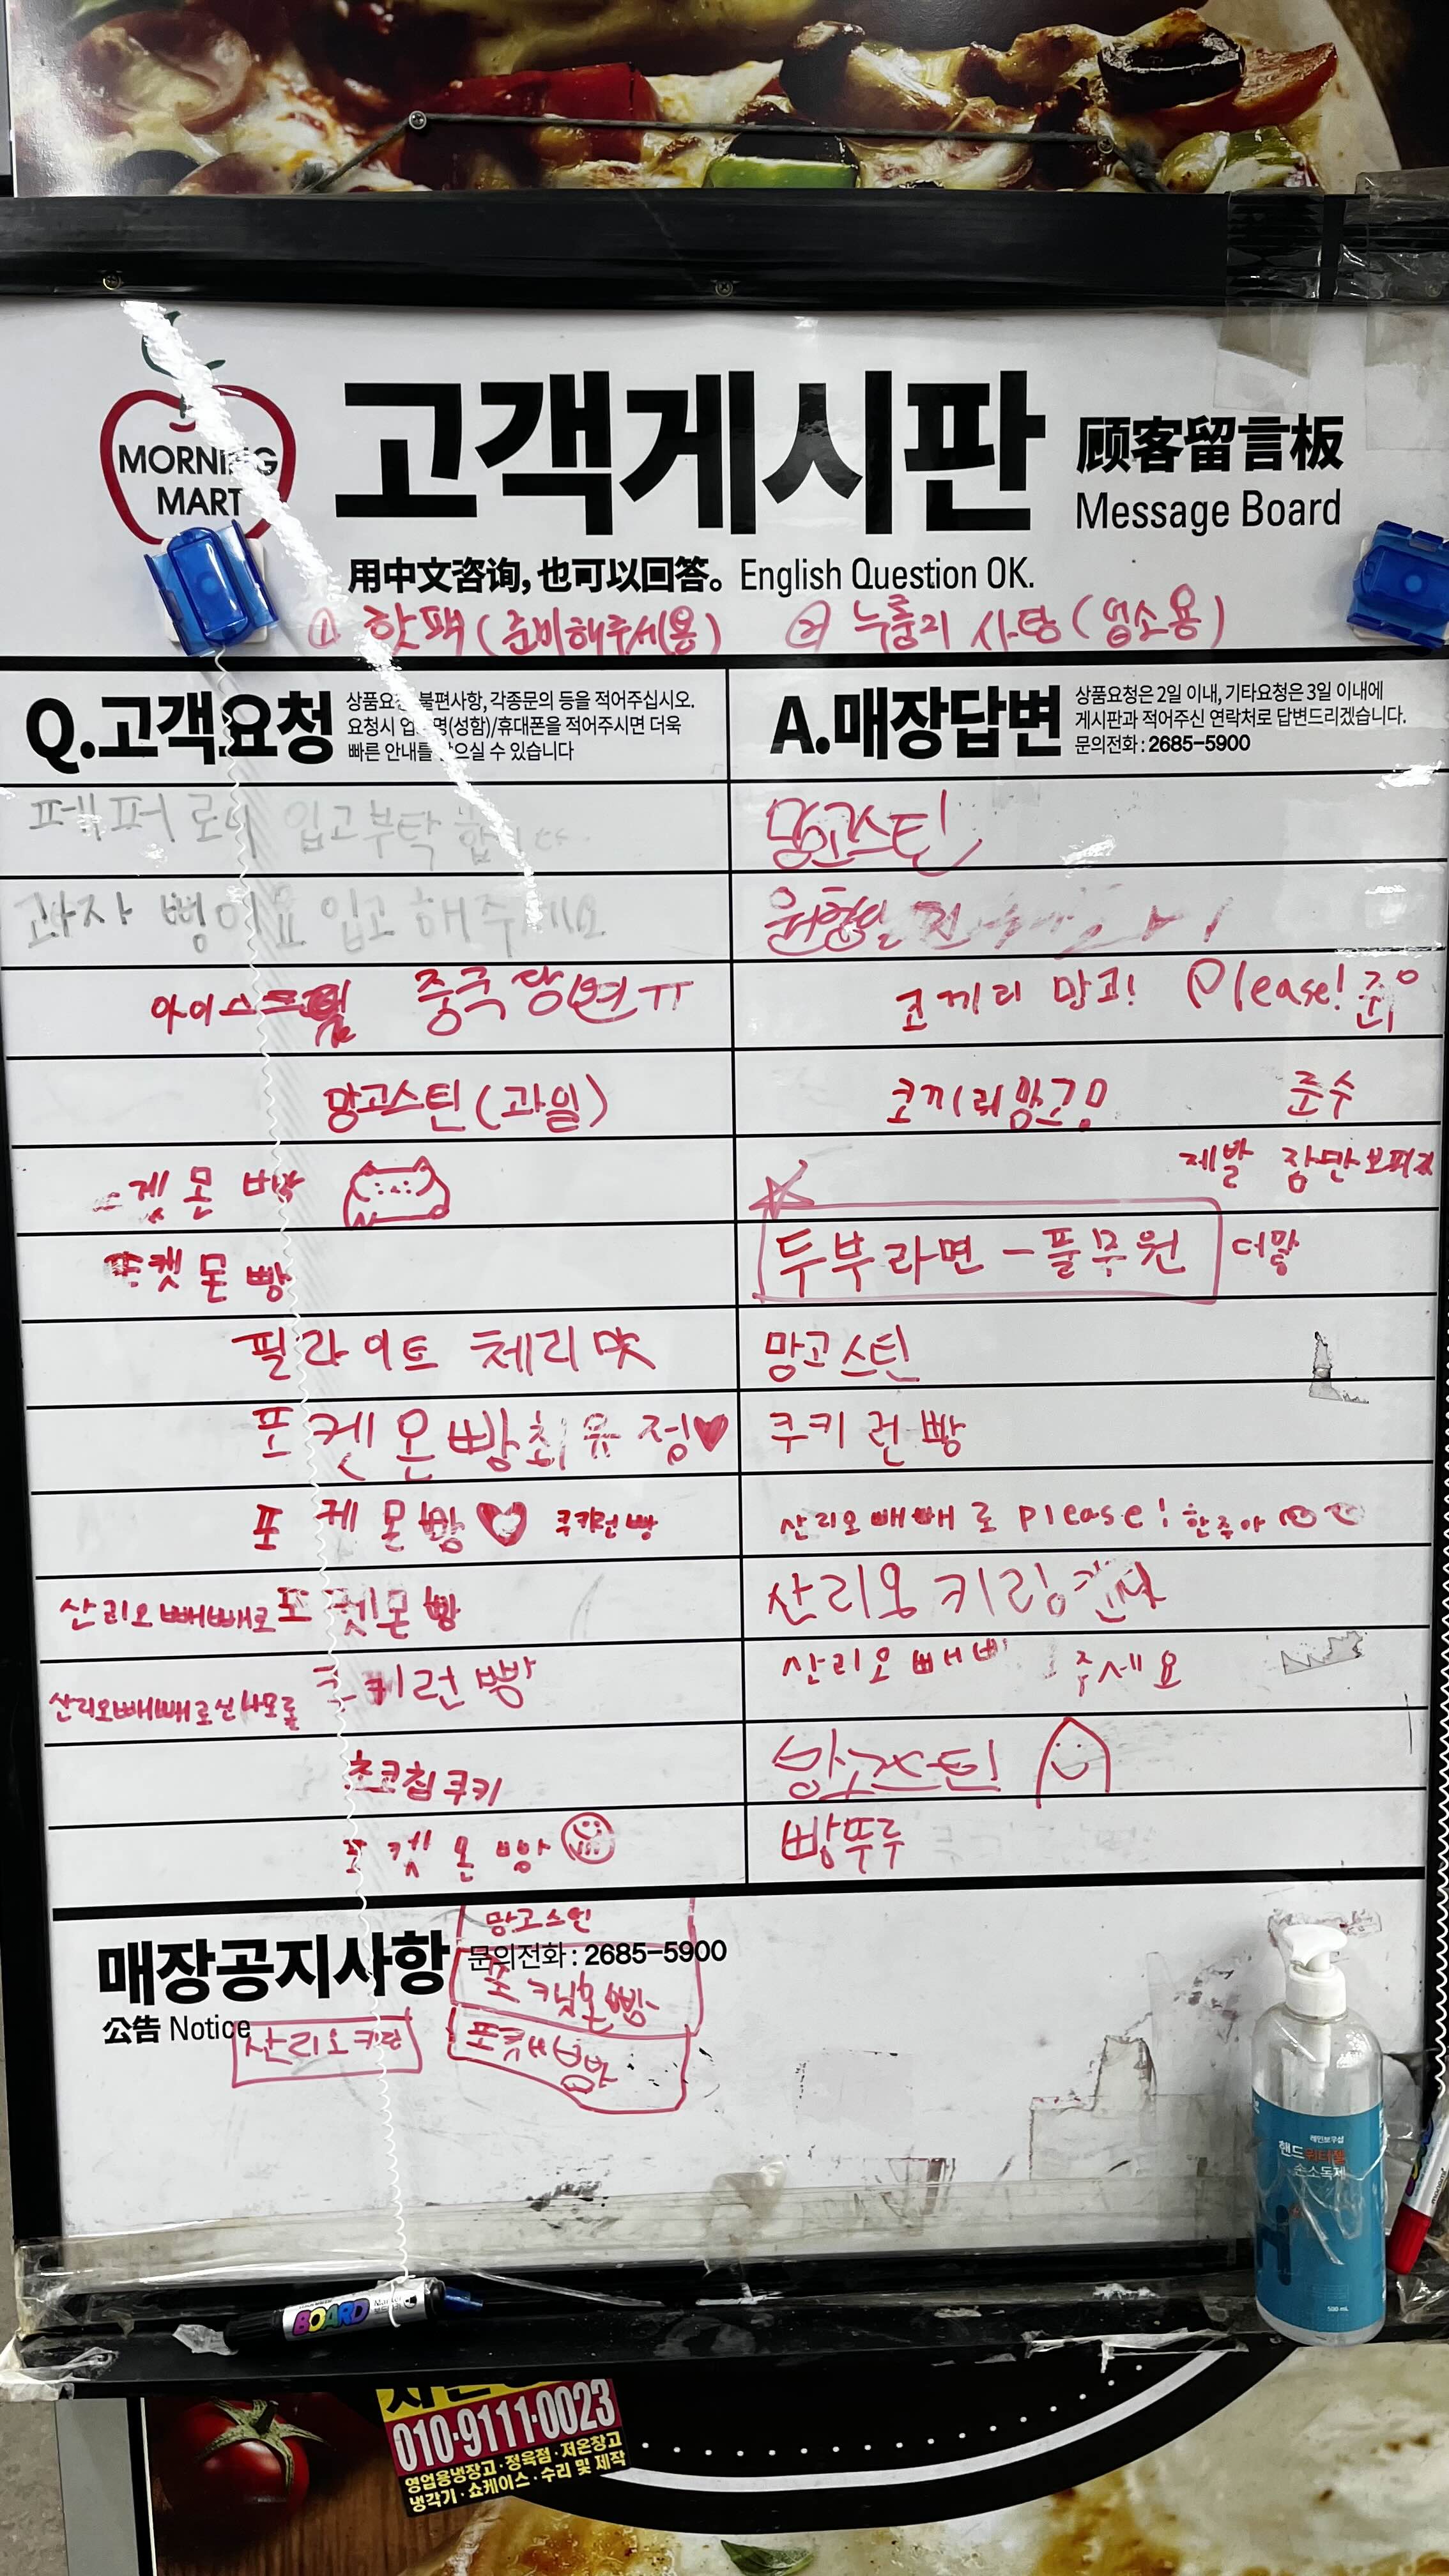 MORNING
MART
고객게시판
顾客留言板
Message Board
用中文咨询, 也可以回答。 English Question OK.
① 핫팩 (준비해주세용) ② 누룽지 사탕 (업소용)
Q.고객요청
상품요청, 불편사항, 각종문의 등을 적어주십시오.
요청시 업 명(성함)/휴대폰을 적어주시면 더욱
빠른 안내를 받으실 수 있습니다
A.매장답변
상품요청은 2일 이내, 기타요청은 3일 이내에
게시판과 적어주신 연락처로 답변드리겠습니다.
문의전화 : 2685-5900
페퍼로니 입고부탁 합
망고스틴
과자 뻥이요 입고해주세요
아이스크림 중국당면ㅠ
코끼리 망고! Please!
망고스틴 (과일)
코끼리망고 준수
켓몬 빵
제발
포켓몬빵
두부라면 - 풀무원
필라이트 체리맛
망고스틴
포켓몬빵 최유정♥
쿠키런빵
포케몬빵♡ 쿠키런빵
산리오빼빼로 please!
산리오빼빼로 포켓몬빵
산리오 키링
산리오빼빼로 쿠키런빵
산리오 빼빼 주세요
초코칩쿠키
망고스틴
포켓몬빵
빵뚜루
매장공지사항
문의전화 : 2685-5900
망고스틴
公告 Notice
산리오키링
BOARD
Marker
핸드워터젤
손소독제
500 mL
010-9111-0023
영업용냉장고·정육점·저온창고
냉각기·쇼케이스·수리 및 제작